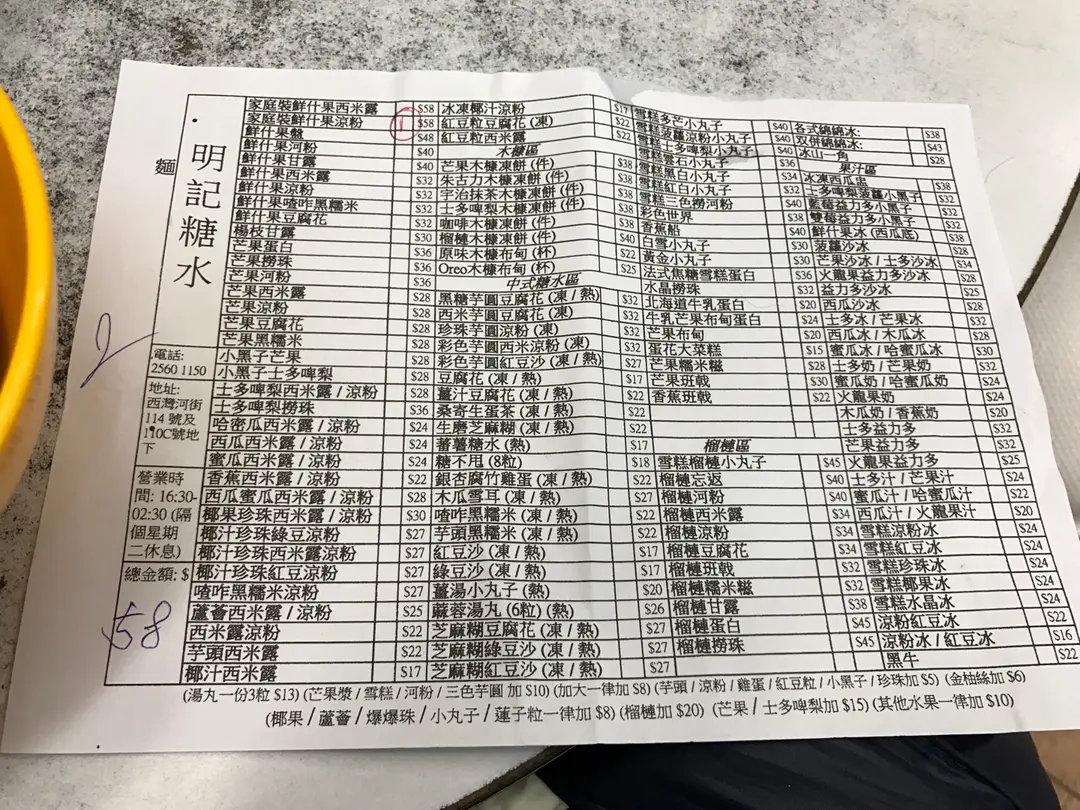 麵
明記糖水
電話:
2560 1150
地址:
西灣河街
114 號及
110C號地
下
營業時
間: 16:30-
02:30 (隔
個星期
二休息)
總金額: $
58
2
家庭裝鮮什果西米露 $58
家庭裝鮮什果涼粉 1 $58
鮮什果盤 $48
鮮什果河粉 $40
鮮什果甘露 $40
鮮什果西米露 $32
鮮什果涼粉 $32
鮮什果喳咋黑糯米 $32
鮮什果豆腐花 $32
楊枝甘露 $30
芒果蛋白 $36
芒果撈珠 $36
芒果河粉 $36
芒果西米露 $28
芒果涼粉 $28
芒果豆腐花 $28
芒果黑糯米 $28
小黑子芒果 $28
小黑子士多啤梨 $28
士多啤梨西米露 / 涼粉 $28
士多啤梨撈珠 $36
哈密瓜西米露 / 涼粉 $24
西瓜西米露 / 涼粉 $24
蜜瓜西米露 / 涼粉 $24
香蕉西米露 / 涼粉 $22
西瓜蜜瓜西米露 / 涼粉 $28
椰果珍珠西米露 / 涼粉 $30
椰汁珍珠綠豆涼粉 $27
椰汁珍珠西米露涼粉 $27
椰汁珍珠紅豆涼粉 $27
喳咋黑糯米涼粉 $27
蘆薈西米露 / 涼粉 $25
西米露涼粉 $22
芋頭西米露 $22
椰汁西米露 $17
冰凍椰汁涼粉 $17
紅豆粒豆腐花 (凍) $22
紅豆粒西米露 $22
木糠區
芒果木糠凍餅 (件) $38
朱古力木糠凍餅 (件) $38
宇治抹茶木糠凍餅 (件) $38
士多啤梨木糠凍餅 (件) $38
咖啡木糠凍餅 (件) $38
榴槤木糠凍餅 (件) $40
原味木糠布甸 (杯) $22
Oreo木糠布甸 (杯) $25
中式糖水區
黑糖芋圓豆腐花 (凍 / 熱) $32
西米芋圓豆腐花 (凍) $32
珍珠芋圓涼粉 (凍) $32
彩色芋圓西米涼粉 (凍) $32
彩色芋圓紅豆沙 (凍 / 熱) $27
豆腐花 (凍 / 熱) $17
薑汁豆腐花 (凍 / 熱) $17
桑寄生蛋茶 (凍 / 熱) $22
生磨芝麻糊 (凍 / 熱) $22
蕃薯糖水 (熱) $17
糖不甩 (8粒) $18
銀杏腐竹雞蛋 (凍 / 熱) $22
木瓜雪耳 (凍 / 熱) $22
喳咋黑糯米 (凍 / 熱) $22
芋頭黑糯米 (凍 / 熱) $22
紅豆沙 (凍 / 熱) $17
綠豆沙 (凍 / 熱) $17
薑湯小丸子 (熱) $20
蔴蓉湯丸 (6粒) (熱) $26
芝麻糊豆腐花 (凍 / 熱) $27
芝麻糊綠豆沙 (凍 / 熱) $27
芝麻糊紅豆沙 (凍 / 熱) $27
雪糕多芒小丸子 $40
雪糕菠蘿涼粉小丸子 $40
雪糕士多啤梨小丸子 $40
雪糕雲石小丸子 $36
雪糕黑白小丸子 $34
雪糕紅白小丸子 $32
雪糕三色撈河粉 $40
彩色世界 $38
香蕉船 $40
白雪小丸子 $30
黃金小丸子 $30
法式焦糖雪糕蛋白 $36
水晶撈珠 $32
北海道牛乳蛋白 $20
牛乳芒果布甸蛋白 $24
芒果布甸 $20
蛋花大菜糕 $15
芒果糯米糍 $28
芒果班戟 $30
香蕉班戟 $22
榴槤區
雪糕榴槤小丸子 $45
榴槤忘返 $40
榴槤河粉 $40
榴槤西米露 $34
榴槤涼粉 $34
榴槤豆腐花 $34
榴槤班戟 $34
榴槤糯米糍 $32
榴槤甘露 $38
榴槤蛋白 $45
榴槤撈珠 $45
各式綿綿冰: $38
双併綿綿冰: $43
冰山一角 $28
果汁區
冰凍西瓜虫 $38
士多啤梨菠蘿小黑子 $32
藍莓益力多小黑子 $32
雙莓益力多小黑子 $32
鮮什果冰 (西瓜底) $38
菠蘿沙冰 $28
芒果沙冰 / 士多沙冰 $34
火龍果益力多沙冰 $28
益力多沙冰 $25
西瓜沙冰 $28
士多冰 / 芒果冰 $32
西瓜冰 / 木瓜冰 $28
蜜瓜冰 / 哈蜜瓜冰 $30
士多奶 / 芒果奶 $32
蜜瓜奶 / 哈蜜瓜奶 $24
火龍果奶 $24
木瓜奶 / 香蕉奶 $20
士多益力多 $32
芒果益力多 $32
火龍果益力多 $25
士多汁 / 芒果汁 $24
蜜瓜汁 / 哈蜜瓜汁 $22
西瓜汁 / 火龍果汁 $20
雪糕涼粉冰 $24
雪糕紅豆冰 $24
雪糕珍珠冰 $24
雪糕椰果冰 $24
雪糕水晶冰 $24
涼粉紅豆冰 $22
涼粉冰 / 紅豆冰 $16
黑牛 $22
(湯丸一份3粒 $13) (芒果漿 / 雪糕 / 河粉 / 三色芋圓 加 $10) (加大一律加 $8) (芋頭 / 涼粉 / 雞蛋 / 紅豆粒 / 小黑子 / 珍珠加 $5) (金柚絲加 $6)
(椰果 / 蘆薈 / 爆爆珠 / 小丸子 / 蓮子粒一律加 $8) (榴槤加 $20) (芒果 / 士多啤梨加 $15) (其他水果一律加 $10)